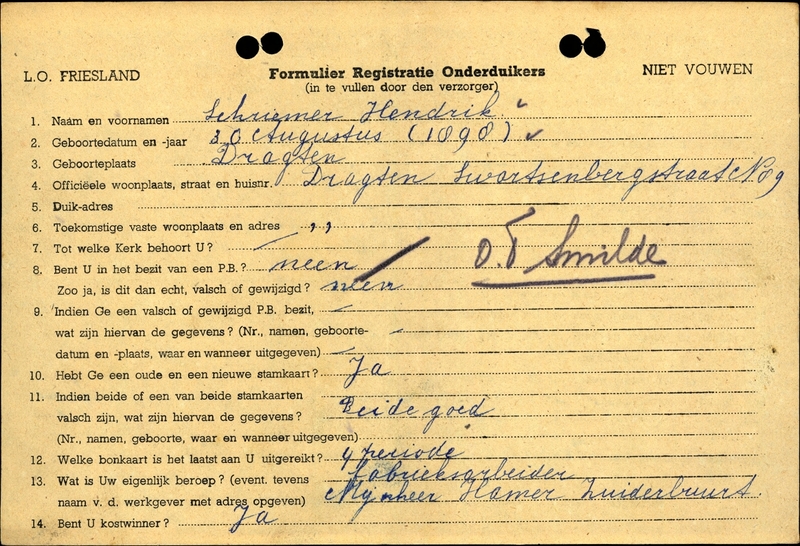 L.O. FRIESLAND
Formulier Registratie Onderduikers
NIET VOUWEN
(in te vullen door den verzorger)
1. Naam en voornamen Schriemer Hendrik
2. Geboortedatum en -jaar 30 Augustus (1898)
3. Geboorteplaats Dragten
4. Officiëele woonplaats, straat en huisnr. Dragten Swartsenbergstraat No 9
5. Duik-adres
6. Toekomstige vaste woonplaats en adres ,,
7. Tot welke Kerk behoort U? —
8. Bent U in het bezit van een P.B.? neen
O.T Smilde
Zoo ja, is dit dan echt, valsch of gewijzigd? neen
9. Indien Ge een valsch of gewijzigd P.B. bezit, —
wat zijn hiervan de gegevens? (Nr., namen, geboorte- —
datum en -plaats, waar en wanneer uitgegeven) —
10. Hebt Ge een oude en een nieuwe stamkaart? Ja
11. Indien beide of een van beide stamkaarten
valsch zijn, wat zijn hiervan de gegevens? Beide goed
(Nr., namen, geboorte, waar en wanneer uitgegeven)
12. Welke bonkaart is het laatst aan U uitgereikt? 4 periode
13. Wat is Uw eigenlijk beroep? (event. tevens fabrieksarbeider
naam v. d. werkgever met adres opgeven) Mynheer Hamer Zuiderbuurt.
14. Bent U kostwinner? Ja